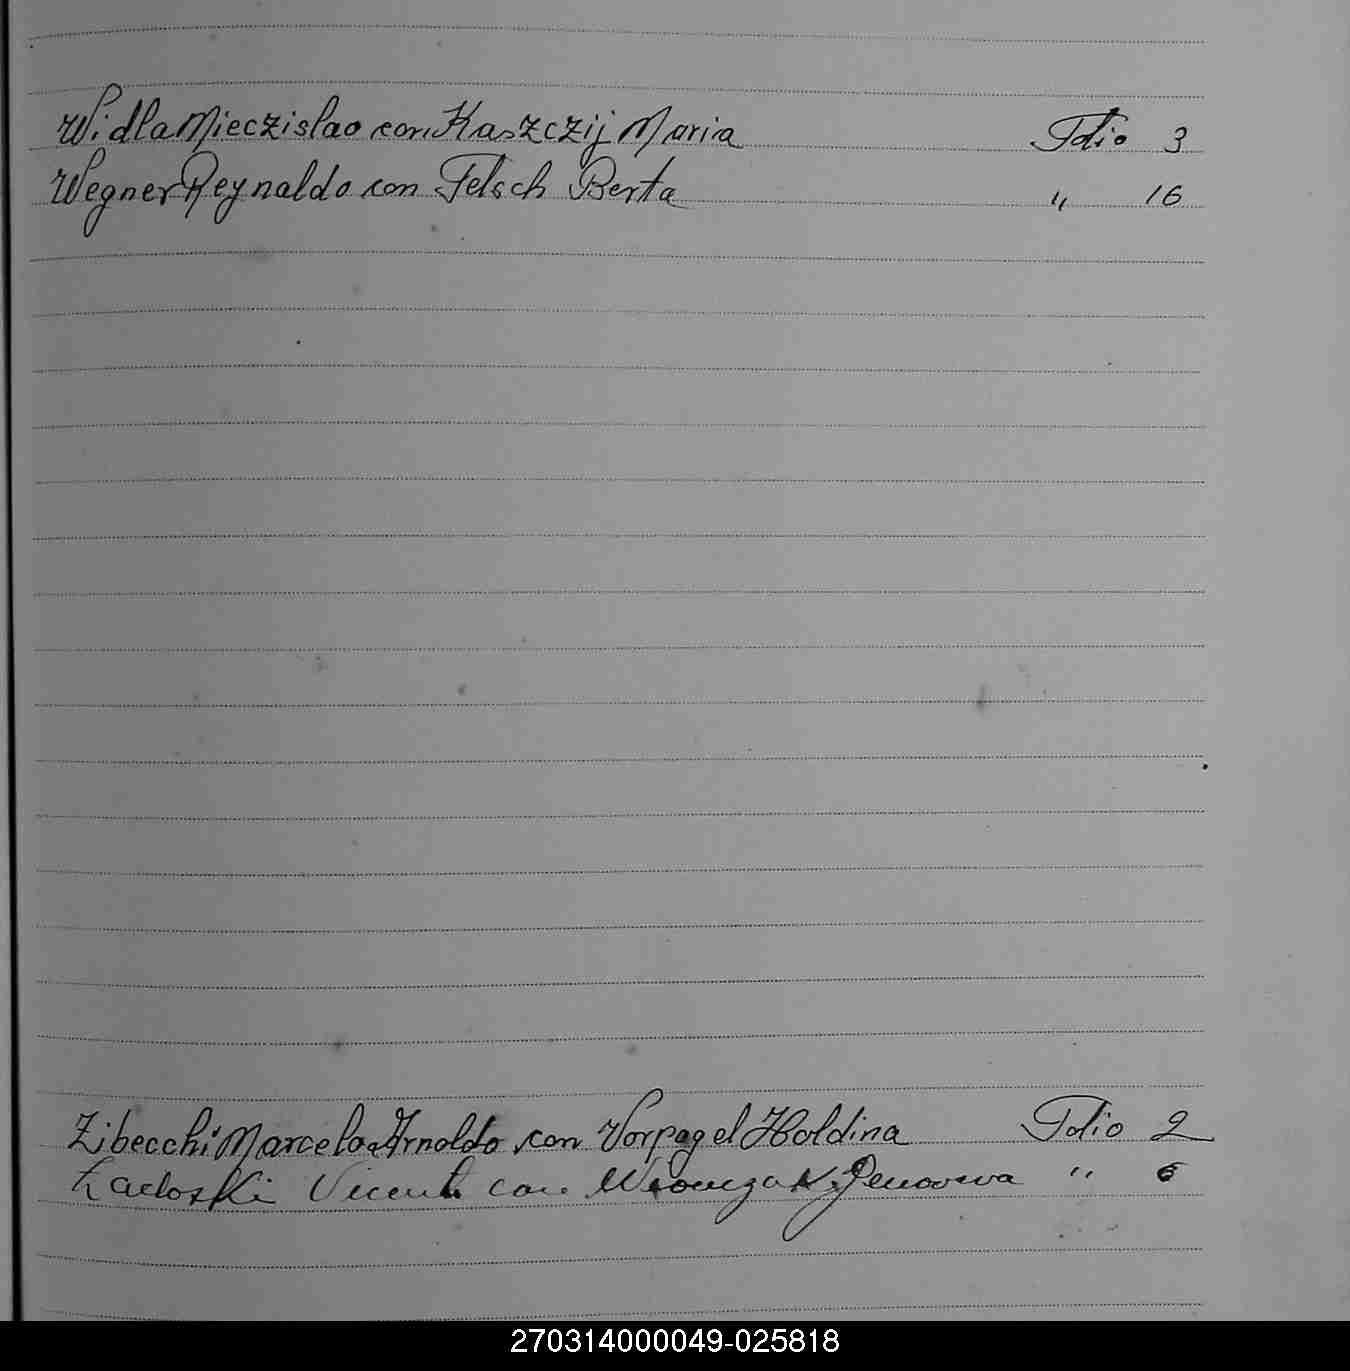 Widla Mieczislao con Kaszczij Maria Folio 3
Wegner Reynaldo con Felsch Berta " 16
Zibecchi Marcelo Arnoldo con Vorpagel Holdina Folio 2
Vicente con Genoveva " 6
270314000049-025818